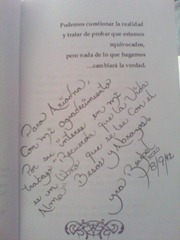 Podemos cuestionar la realidad
y tratar de probar que estamos
equivocados,
pero nada de lo que hagamos
...cambiará la verdad.
Para Arianna,
Con mi agradecimiento
Por su interes en mi
trabajo. Recuerda que la Vida
es un Libro que se lee con el
Alma. Besos y Abrazos